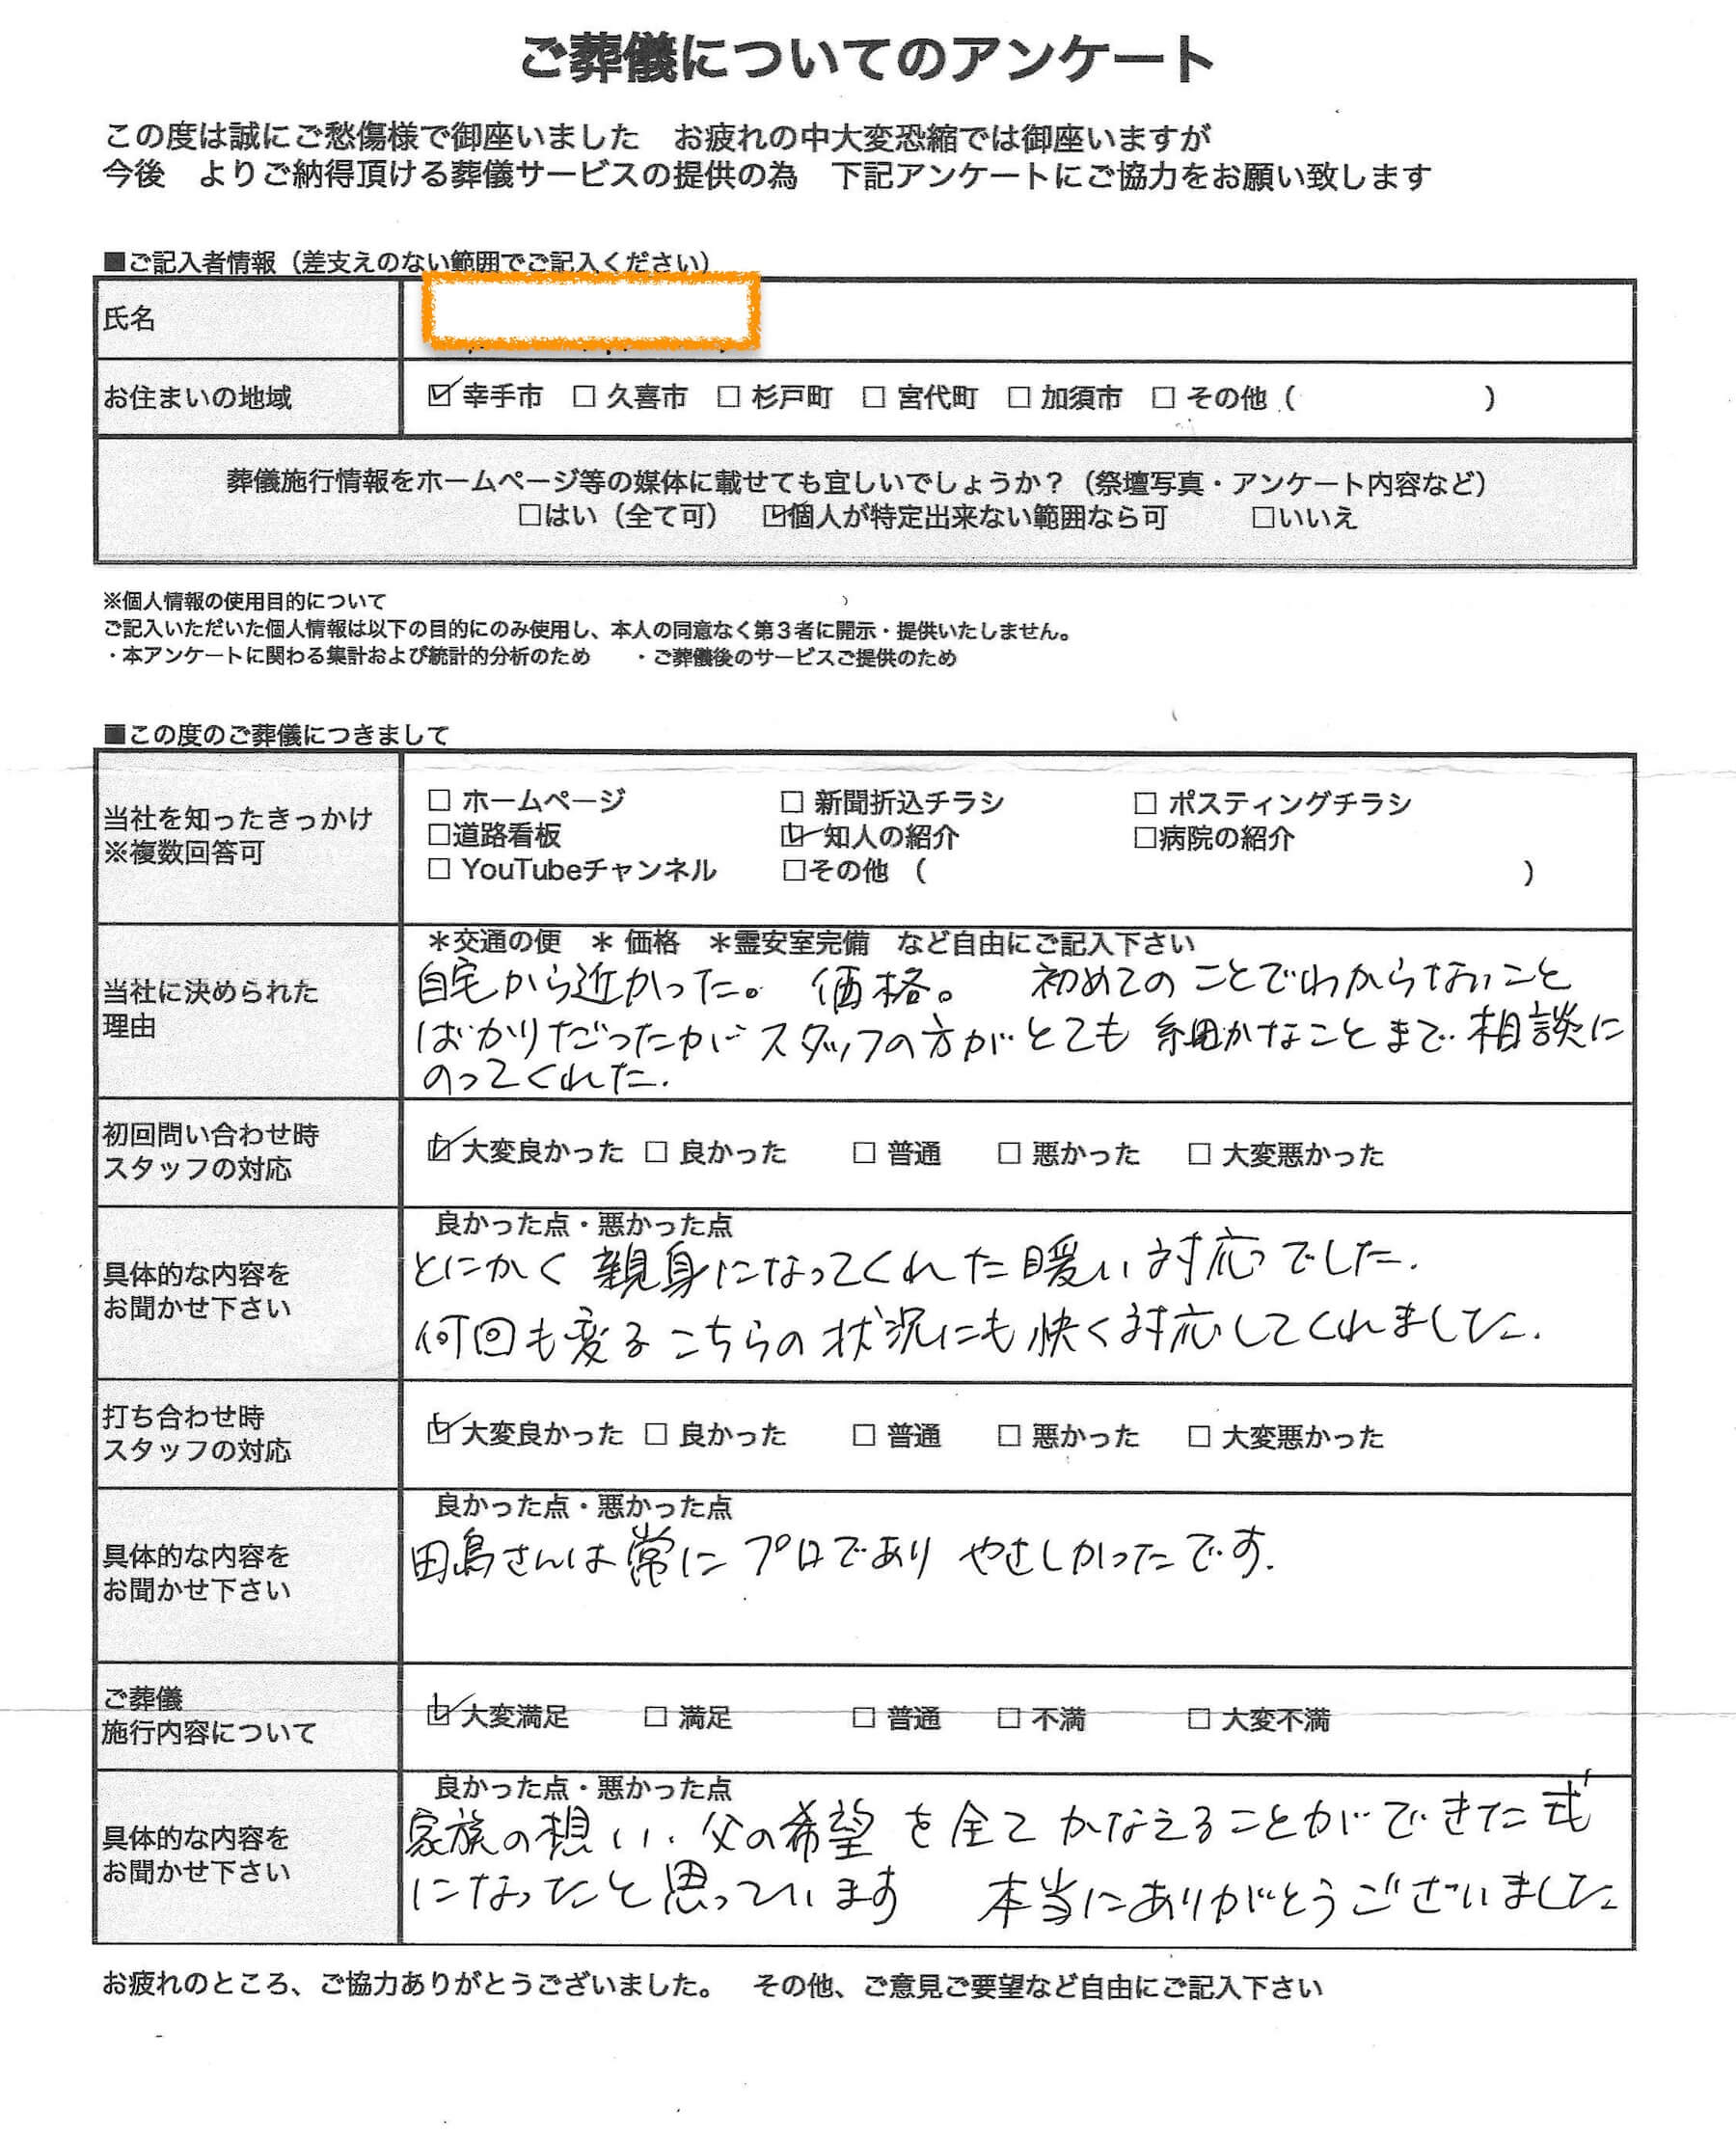 ご葬儀についてのアンケート
この度は誠にご愁傷様で御座いました　お疲れの中大変恐縮では御座いますが
今後　よりご納得頂ける葬儀サービスの提供の為　下記アンケートにご協力をお願い致します
■ご記入者情報（差支えのない範囲でご記入ください）
氏名
お住まいの地域　☑ 幸手市　□ 久喜市　□ 杉戸町　□ 宮代町　□ 加須市　□ その他（　　　　　　）
葬儀施行情報をホームページ等の媒体に載せても宜しいでしょうか？（祭壇写真・アンケート内容など）
□はい（全て可）　☑個人が特定出来ない範囲なら可　　□いいえ
※個人情報の使用目的について
ご記入いただいた個人情報は以下の目的にのみ使用し、本人の同意なく第３者に開示・提供いたしません。
・本アンケートに関わる集計および統計的分析のため　・ご葬儀後のサービスご提供のため
■この度のご葬儀につきまして
当社を知ったきっかけ
※複数回答可
□ ホームページ　□ 新聞折込チラシ　□ ポスティングチラシ
□道路看板　☑ 知人の紹介　□病院の紹介
□ YouTubeチャンネル　□その他（　　　　　　）
当社に決められた
理由
＊交通の便　＊ 価格　＊霊安室完備　など自由にご記入下さい
自宅から近かった。　価格。　初めてのことでわからないこと
ばかりだったがスタッフの方がとても細かなことまで相談に
のってくれた.
初回問い合わせ時
スタッフの対応
☑ 大変良かった　□ 良かった　□ 普通　□ 悪かった　□ 大変悪かった
具体的な内容を
お聞かせ下さい
良かった点・悪かった点
とにかく親身になってくれた暖い対応でした.
何回も変るこちらの状況にも快く対応してくれました.
打ち合わせ時
スタッフの対応
☑ 大変良かった　□ 良かった　□ 普通　□ 悪かった　□ 大変悪かった
具体的な内容を
お聞かせ下さい
良かった点・悪かった点
田島さんは常にプロでありやさしかったです.
ご葬儀
施行内容について
☑ 大変満足　□ 満足　□ 普通　□ 不満　□ 大変不満
具体的な内容を
お聞かせ下さい
良かった点・悪かった点
家族の想い、父の希望を全てかなえることができた式
になったと思っています　本当にありがとうございました
お疲れのところ、ご協力ありがとうございました。　その他、ご意見ご要望など自由にご記入下さい